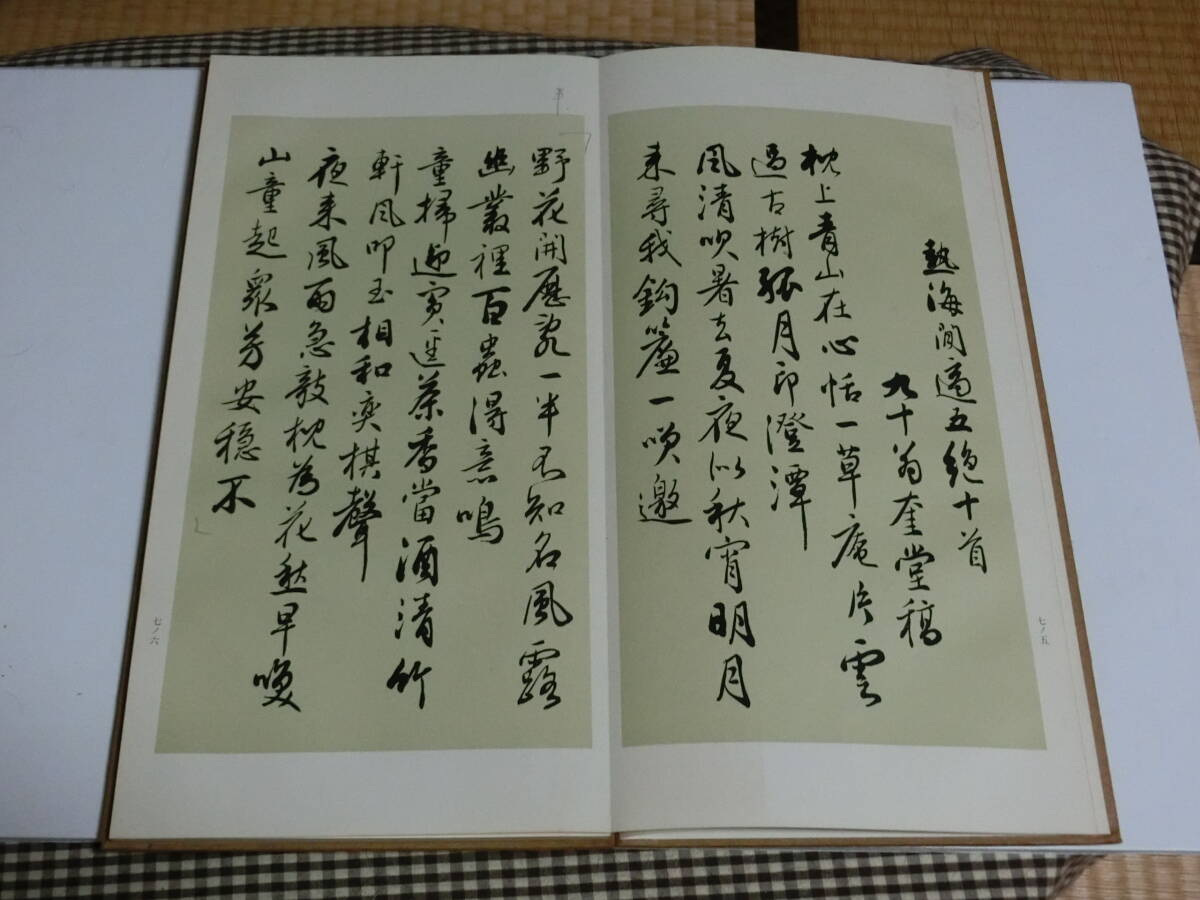 熱海閒適五絶十首
九十翁奎堂稿
枕上青山在心恬一草庵片雲
過古樹孤月印澄潭
風清吹暑去夏夜似秋宵明月
来尋我鈎簾一咲邀
七ノ五
野花開歴亂一半不知名風露
幽叢裡百蟲得意鳴
童掃迎賓逕茶香當酒清竹
軒風叩玉相和奕棋聲
夜来風雨急敧枕為花愁早喚
山童起衆芳安穏不
七ノ六